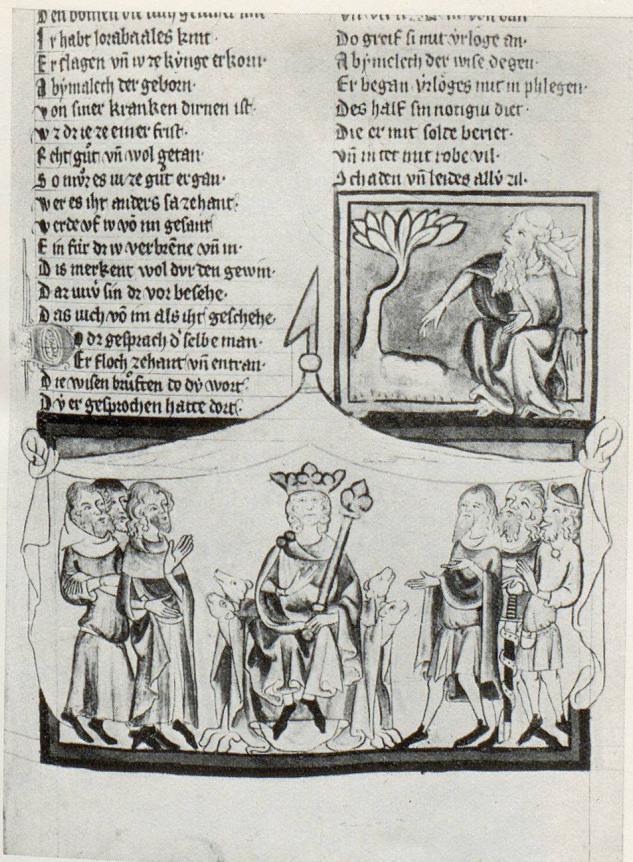 Den boumen die
Ir habt ierabaales kint.
Er slagen vn̄ iv ze kvnge erkorn.
Abymalech der geborn.
von siner kranken dirnen ist.
Echt gůt vn̄ wol getan.
So mvͦz es iv ze gůt ergan.
wer es iht anders sa zehant.
werde vf iv vō im gesant
Ein fúr dz iv verbrēne vn̄ in.
Dis merkent wol dvr den gewin.
Dar vuͥr sin dz vor besehe.
Das iuch vō im als iht geschehe.
Do dz gesprach d' selbe man.
Er floch zehant vn̄ entran.
Die wisen průften do dv́ wort.
Dv́ er gesprochen hatte dort.
Do greif si mit vrloge an.
Abymelech der wise degen.
Er began vrloges mit in phlegen.
Des half sin notigiu diet.
Die er mit solte beriet.
vn̄ in tet mit robe vil.
Schaden vn̄ leides allv́ zil.